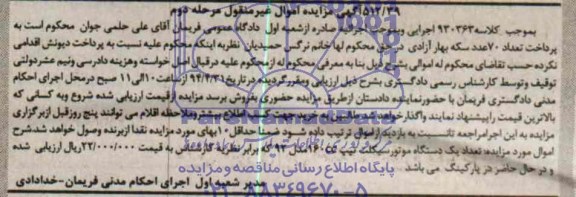 ۵۱۲/۳۹ آگهی مزایده اموال غیرمنقول مرحله دوم
بموجب کلاسه ۹۳۰۳۶۳ اجرایی وبموجب اجرائیه صادره ازشعبه اول دادگاه عمومی فریمان آقای علی حلمی جوان محکوم است به
پرداخت تعداد ۷۰عدد سکه بهار آزادی در حق محکوم لها خانم نرگس حمیدیان نظر به اینکه محکوم علیه نسبت به پرداخت دیونش اقدامی
نکرده حسب تقاضای محکوم له اموالی بشرح ذیل بنا به معرفی محکوم له ازمحکوم علیه درقبال اصل خواسته وهزینه دادرسی ونیم عشردولتی
توقیف وتوسط کارشناس رسمی دادگستری بشرح ذیل ارزیابی ومقررگردیده درتاریخ ۹۴/۴/۳۱ ازساعت ۱۰الی۱۱ صبح درمحل اجرای احکام
مدنی دادگستری فریمان با حضورنماینده دادستان ازطریق مزایده حضوری بفروش برسد مزایده ازقیمت ارزیابی شده شروع وبه کسانی که
بالاترین قیمت راپیشنهاد نمایند واگذارخواهد شد طالبین به خرید جهت کسب اطلاع بیشتر وملاحظه اقلام می توانند پنج روزقبل ازبرگزاری
مزایده به این اجرامراجعه تانسبت به بازدید ازاموال ترتیب داده شود ضمنا حداقل ۱۰بهای مورد مزایده نقدا ازبرنده وصول خواهد شد.شرح
اموال مورد مزایده: تعداد یک دستگاه موتورسیکلت تیپ مدل ۹۳ که برابر نظریه کارشناس به قیمت ۲۲/۰۰۰/۰۰۰ریال ارزیابی شده
و در حال حاضر در پارکینگ می باشد
پایگاه اطلاع رسانی مناقصه ومزایده
مدیر شعبه اول اجرای احکام مدنی فریمان-خدادادی
۰۲۱-۸۸۳۴۹۶۷۰-۵